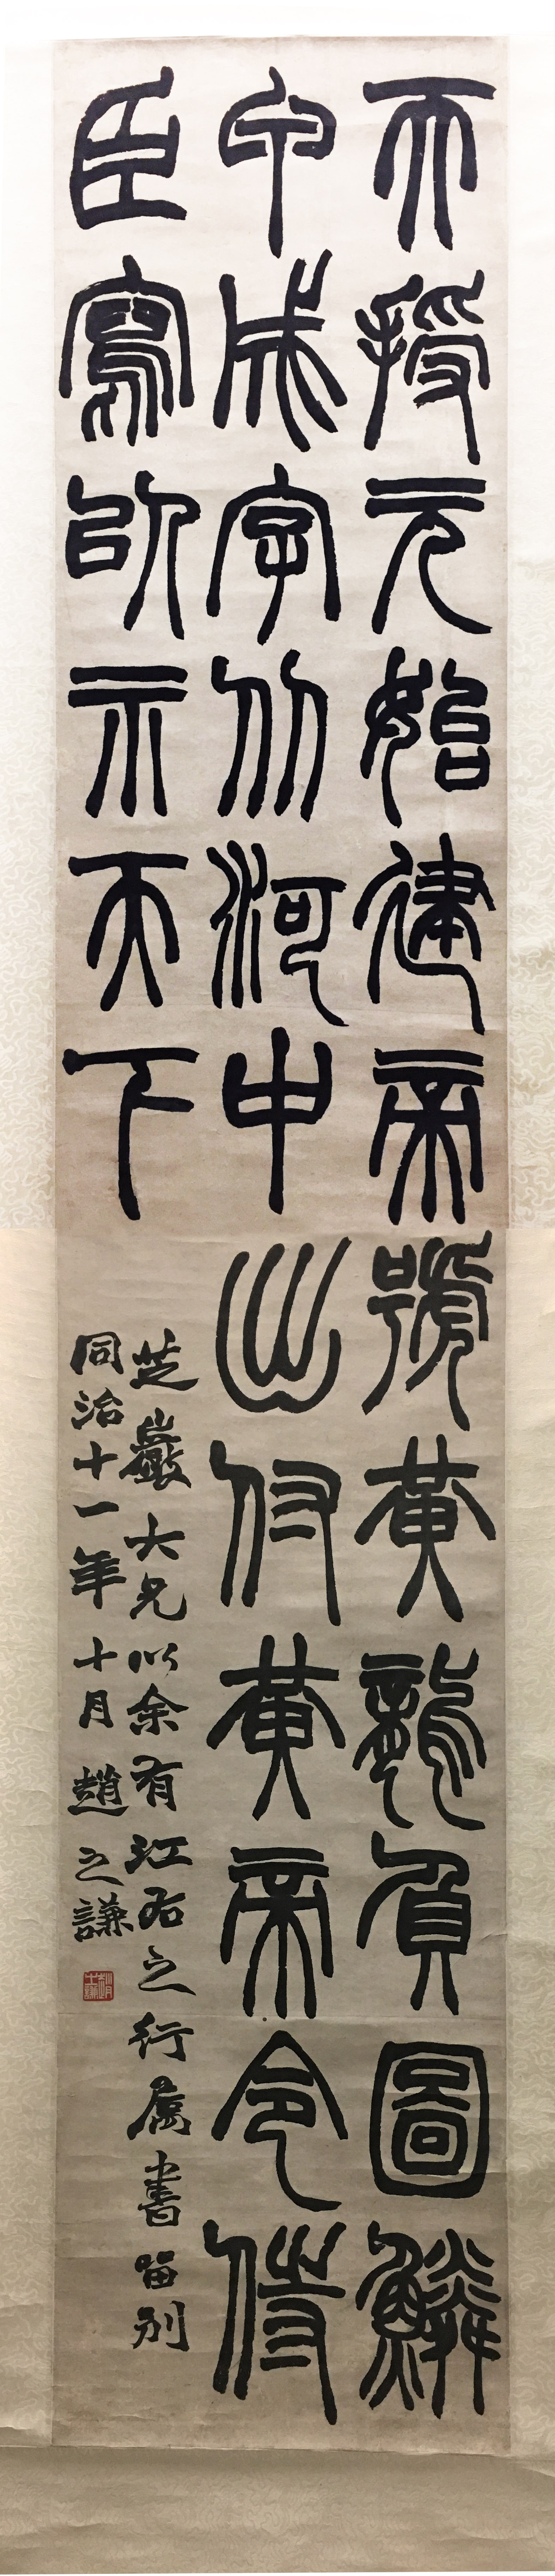 天授元始建帝號黃龍負圖鱗
甲成字从河中出付黃帝令侍
臣寫以示天下
芝巖大兄以余有江右之行屬書畱別
同治十一年十月趙之謙